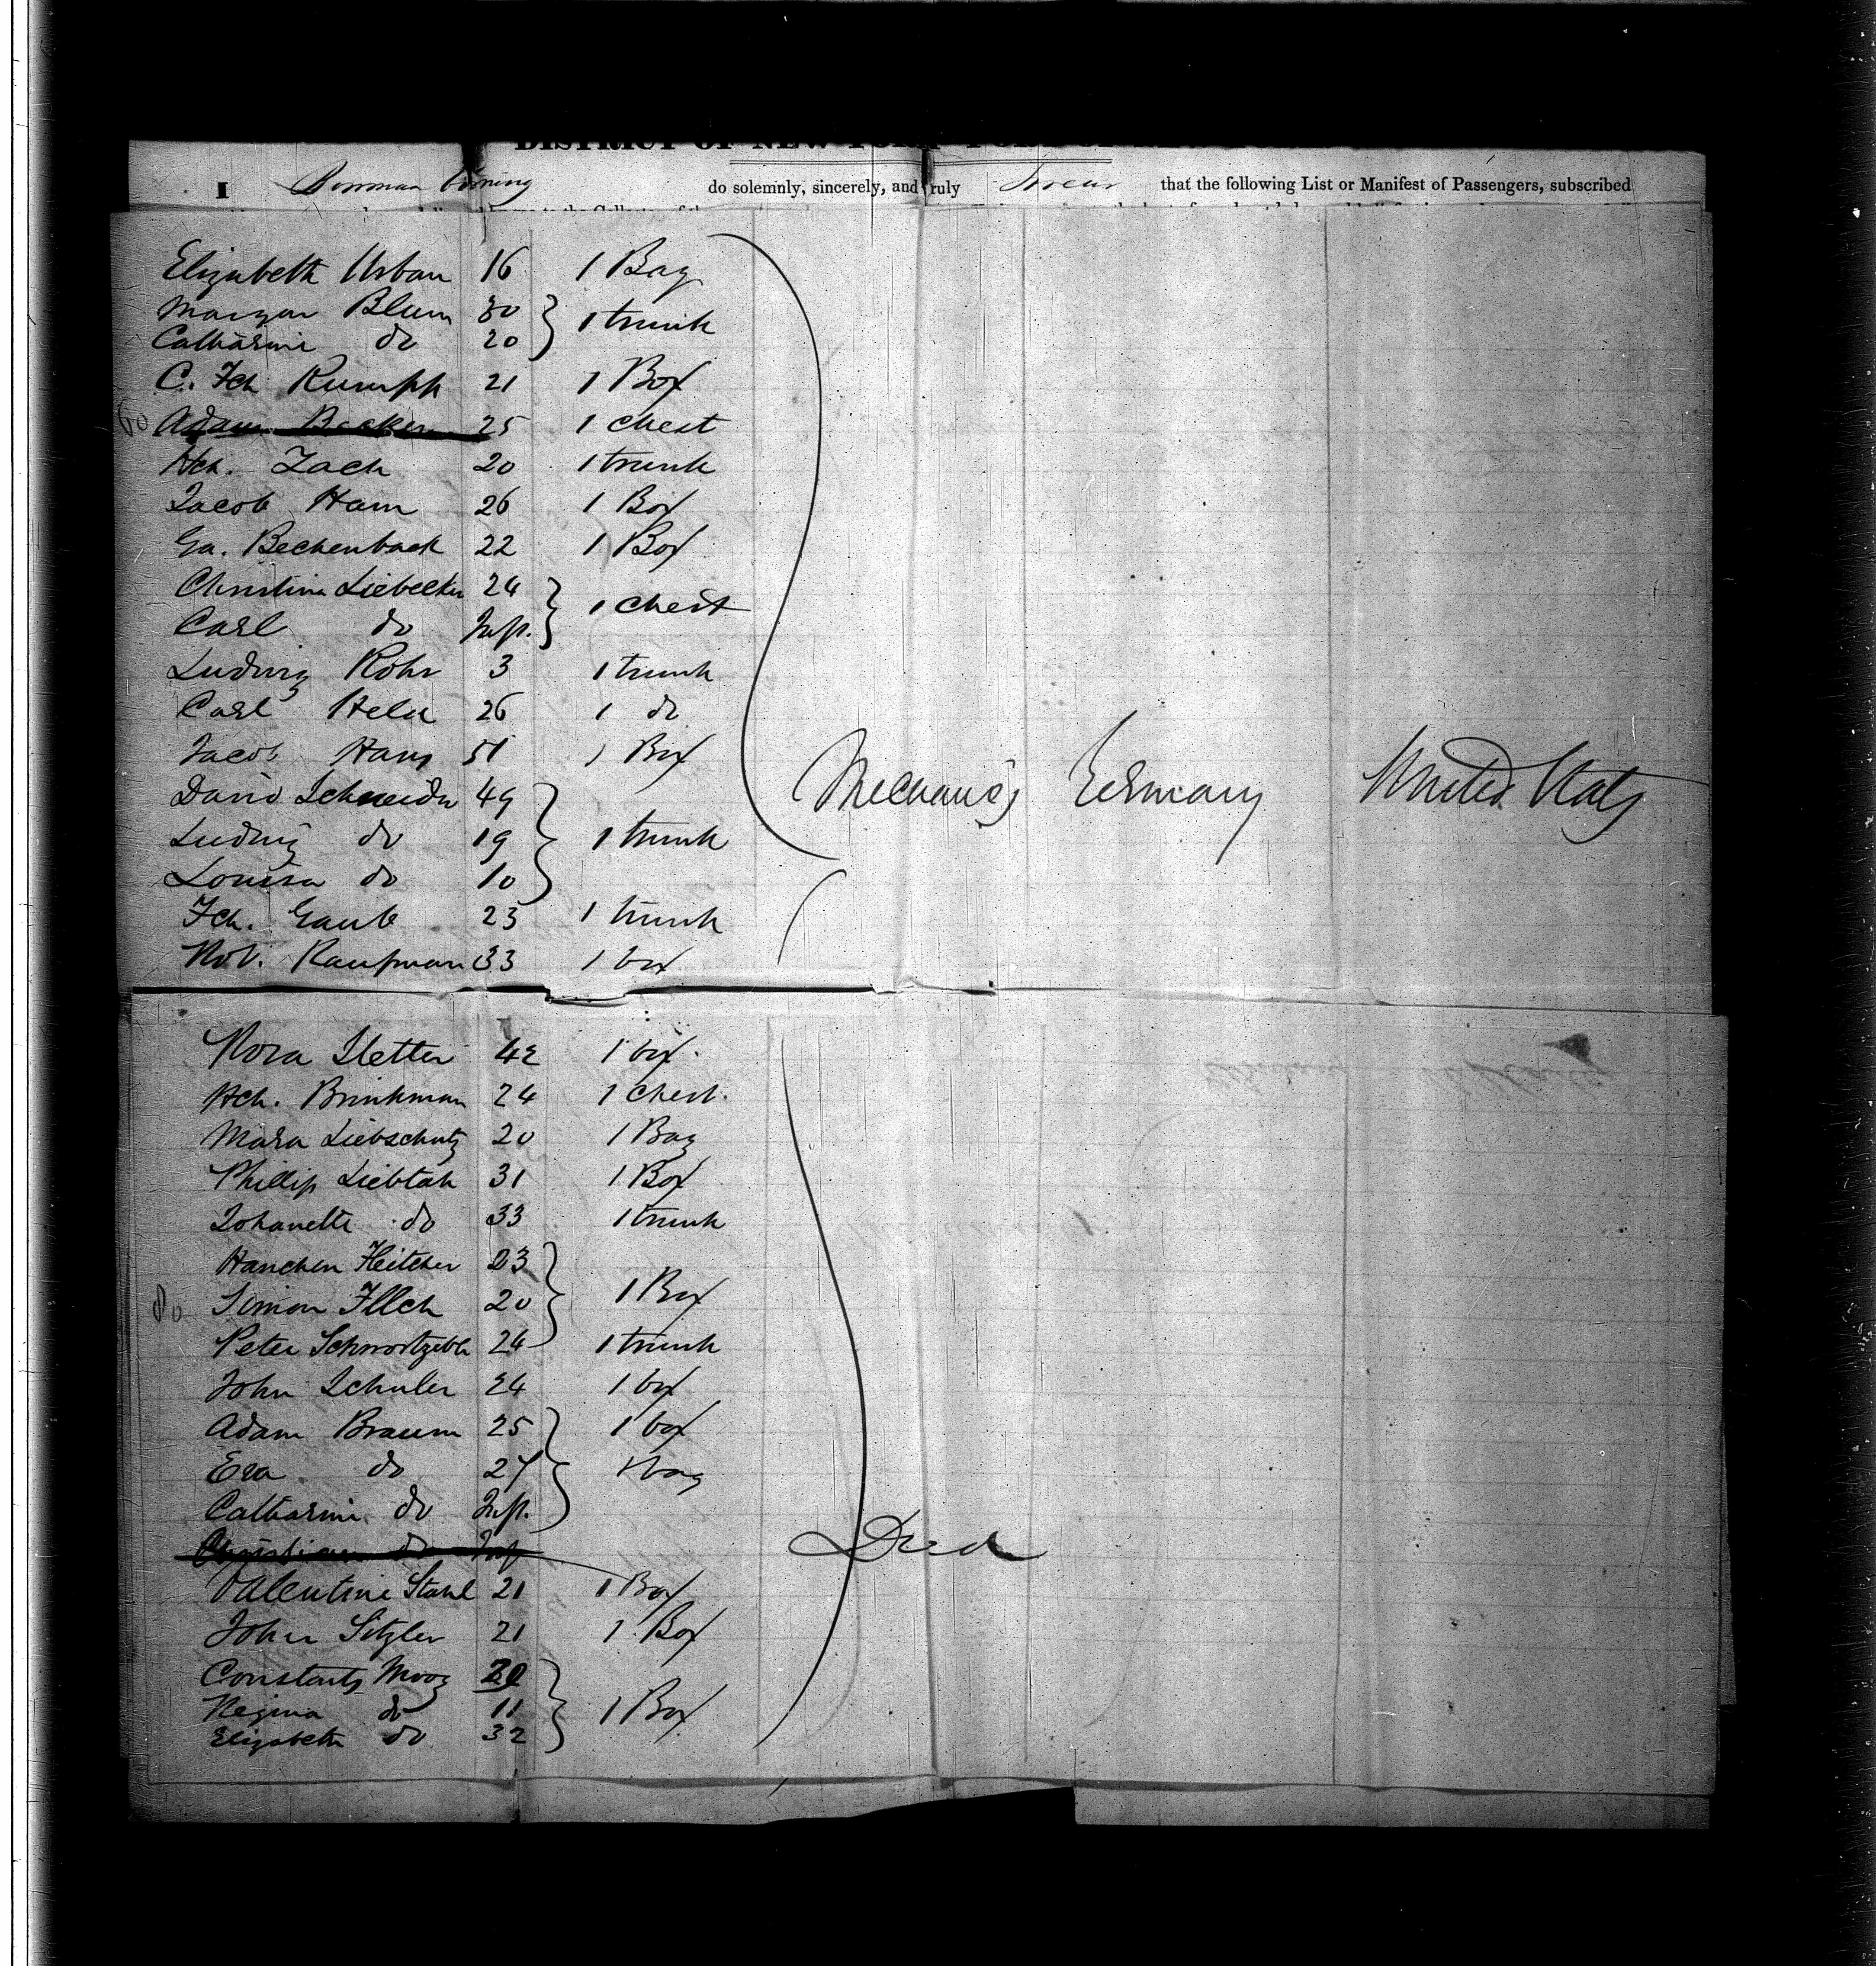 DISTRICT OF NEW YORK PORT OF NEW YORK
I do solemnly, sincerely, and truly swear that the following List or Manifest of Passengers, subscribed
Elizabeth Urban 16 1 Bag
Margar Blum 30 1 trunk
Catharine do 20
C. Fch Rumpp 21 1 Box
60 Adam Becker 25 1 chest
Hch. Zach 20 1 trunk
Jacob Ham 26 1 Box
Ga. Bechenback 22 1 Box
Christina Liebecker 24 1 Chest
Carl do Inft.
Ludwig Rohr 3 1 trunk
Carl Helu 26 1 do
Jacob Haus 51 1 Box
David Schneider 49
Mechanics Germany United Stats
Ludwig do 19 1 trunk
Louisa do 10
Fch. Gaub 23 1 trunk
Rob. Kaufman 33 1 box
Rosa Stetter 42 1 box.
Hch. Brinkman 24 1 chest.
Mara Liebschutz 20 1 Bag
Phillip Liebtah 31 1 Box
Johanette do 33 1 trunk
Hanchen 23
80 Simon Illch 20 1 Box
Peter 24 1 trunk
John Schuler 24 1 box
Adam Braum 25 1 box
Eva do 27 1 bag
Catharine do Inft.
Christian do Inft Died
Valentine Stahl 21 1 Box
John Sitzler 21 1 Box
Constantz Mooz 20
Regina do 11 1 Box
Elizabeth do 32